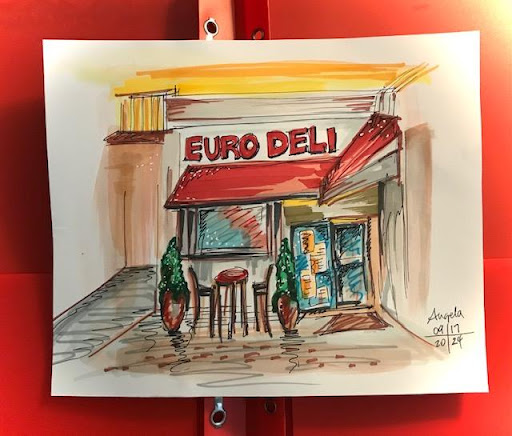 EURO DELI
Angela
09/17
20/24